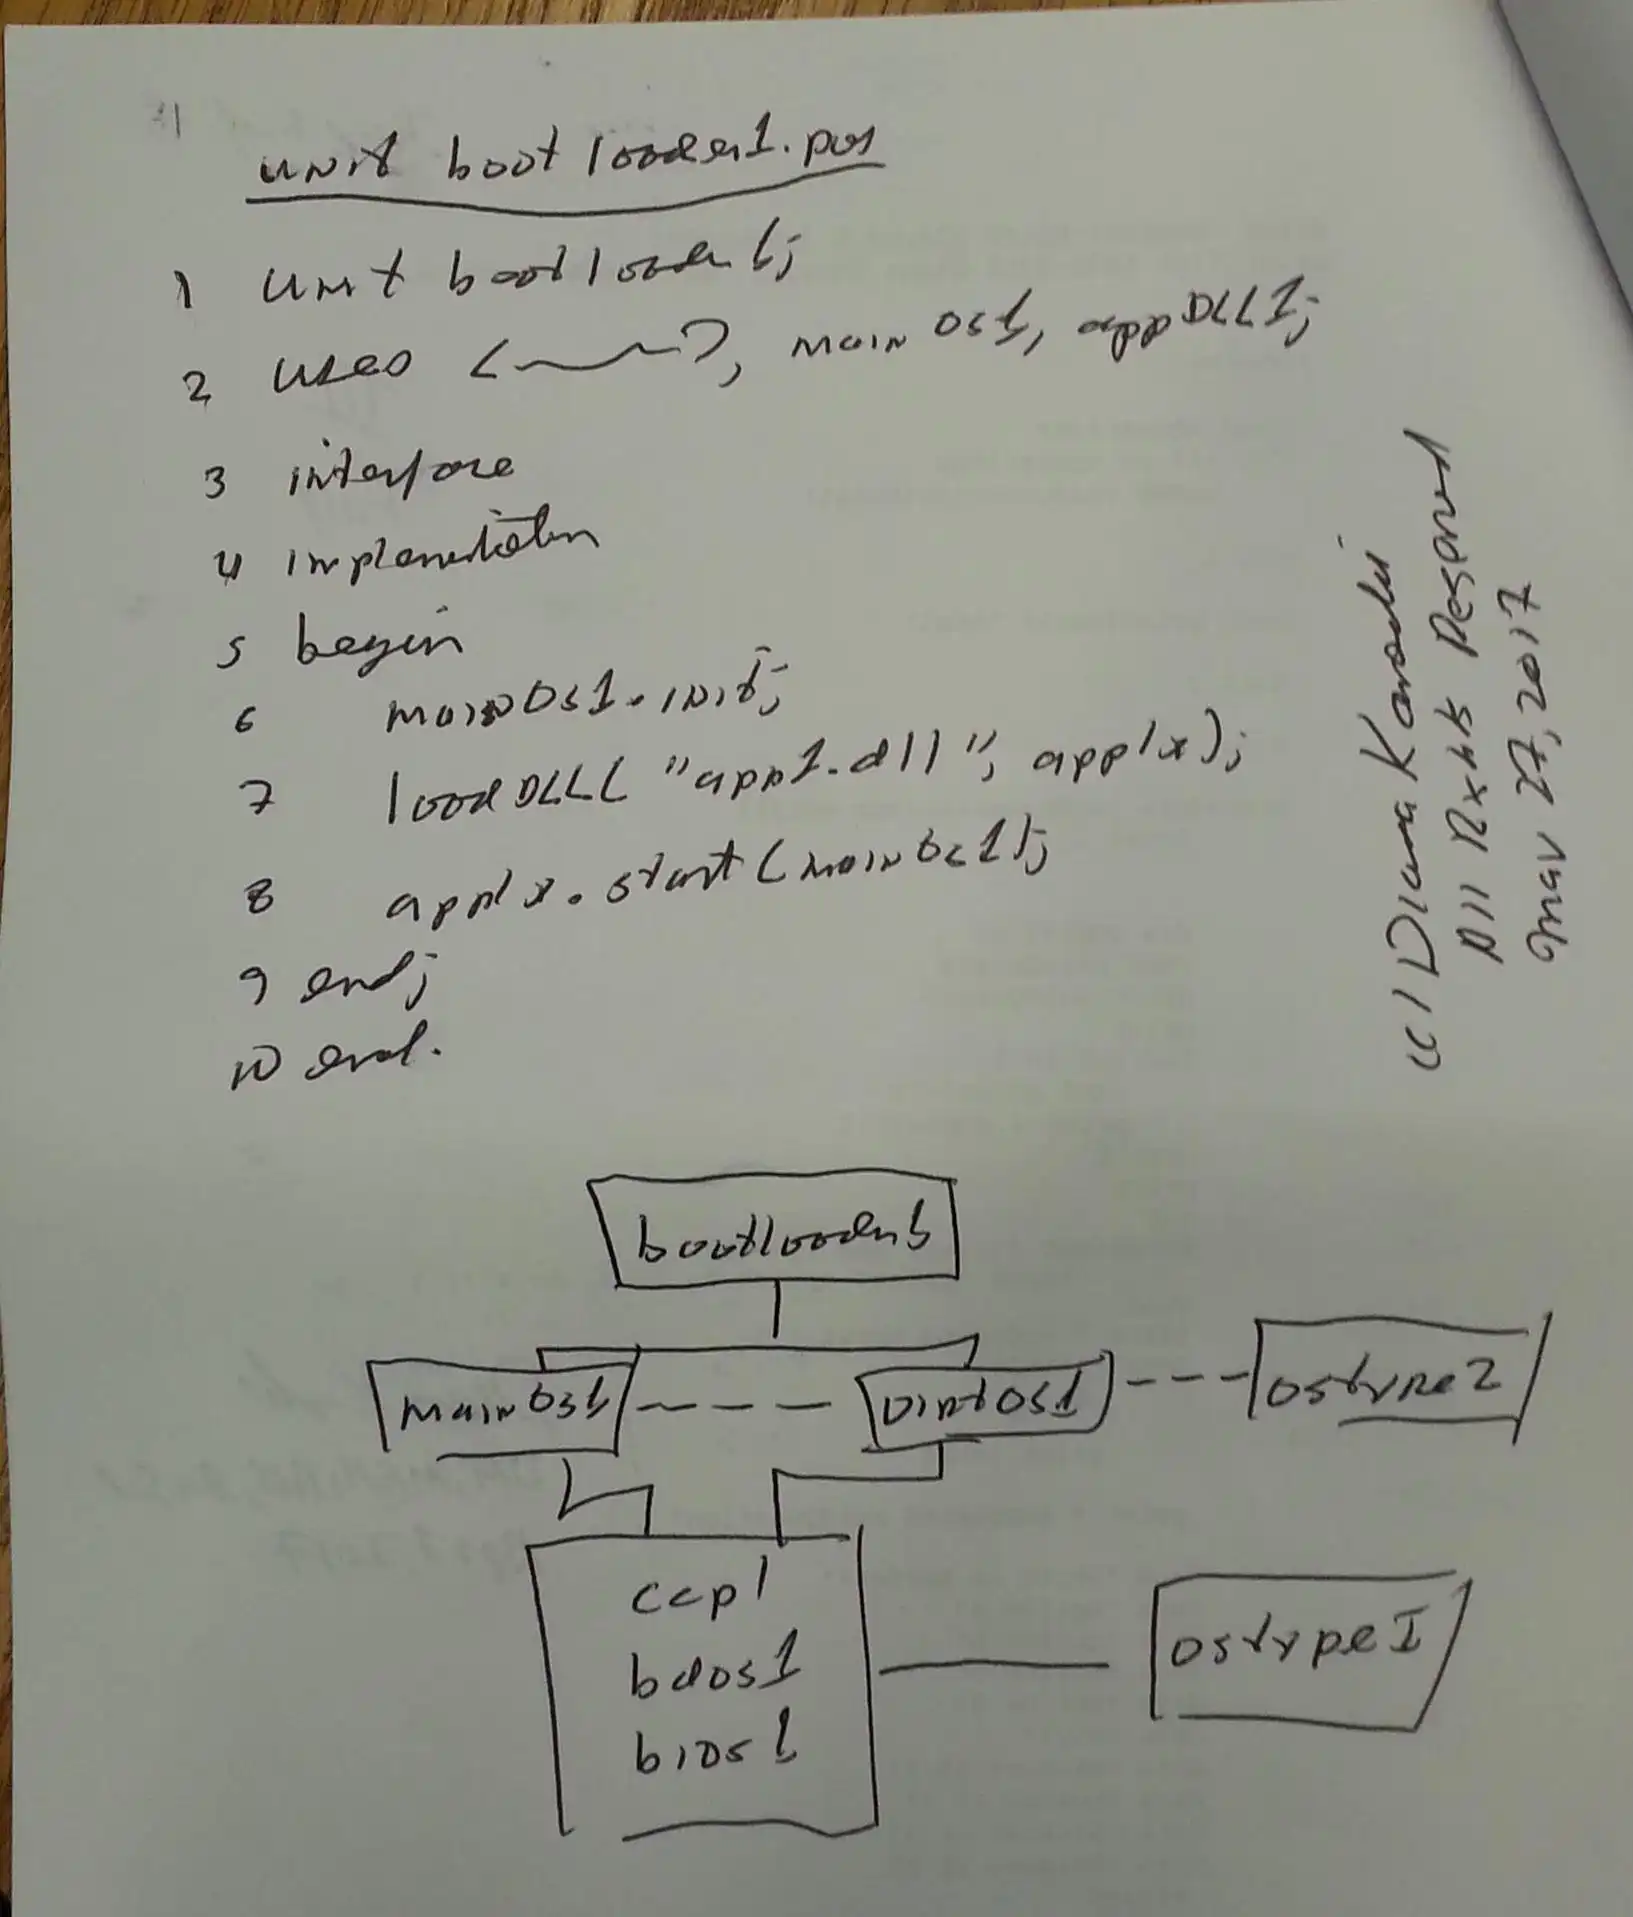 unit bootloader1.pas
1 unit bootloader1;
2 uses < >, mainOS1, appDLL1;
3 interface
4 implementation
5 begin
6 mainOS1.init;
7 loadDLL( "app1.dll", app1x);
8 app1x.start(mainOS1);
9 end;
10 end.
bootloader1
mainOS1 --- OS1 --- ostype2
ccp1
bdos1
bios1
ostypeI
(c) Diana
All Rights Reserved
May 27, 2017